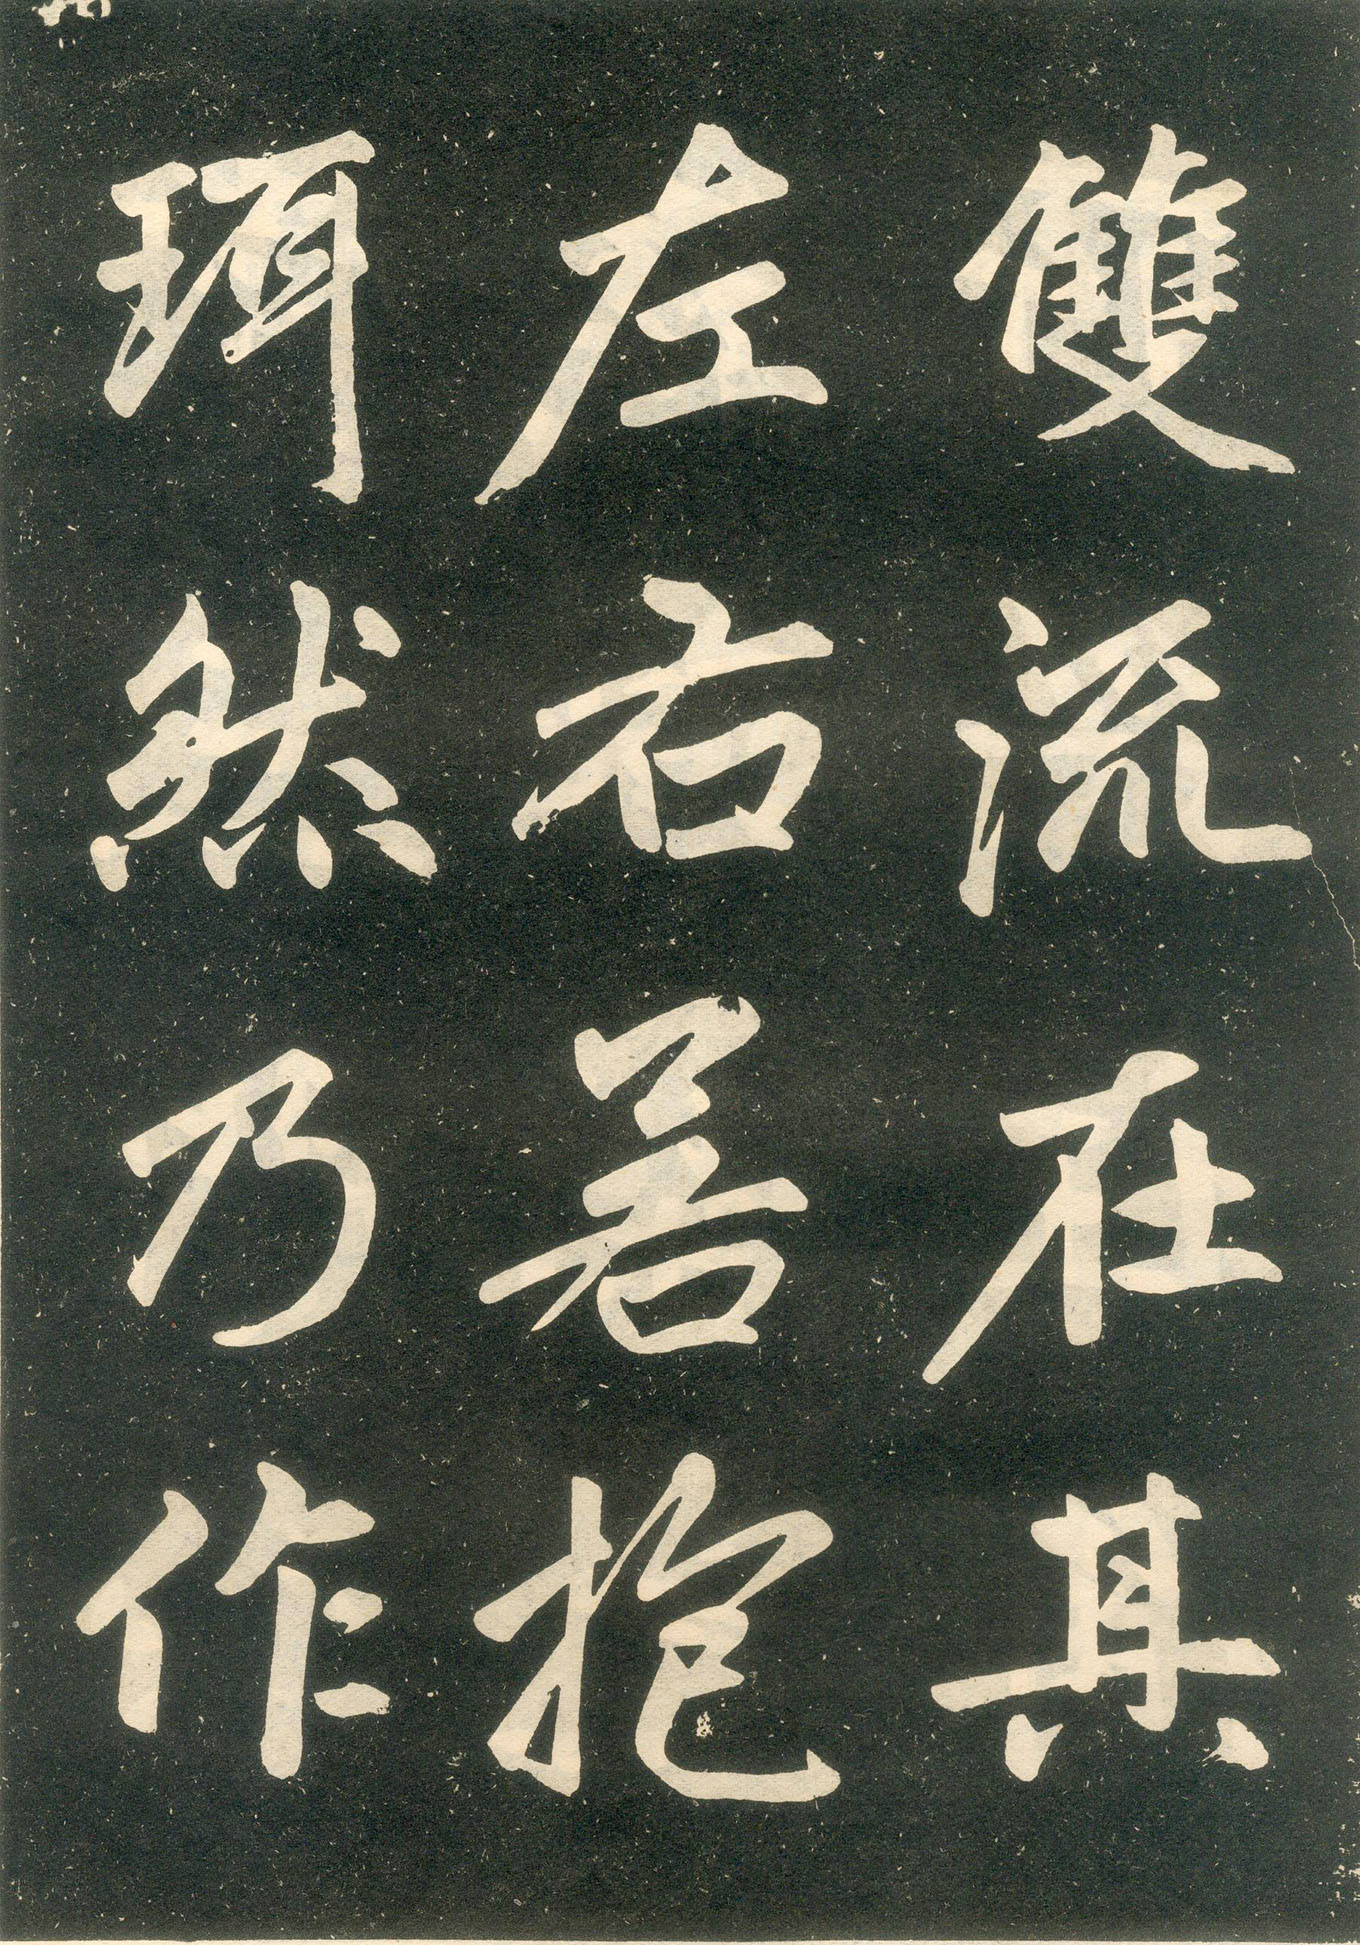 雙流在其
左右若抱
珥然乃作